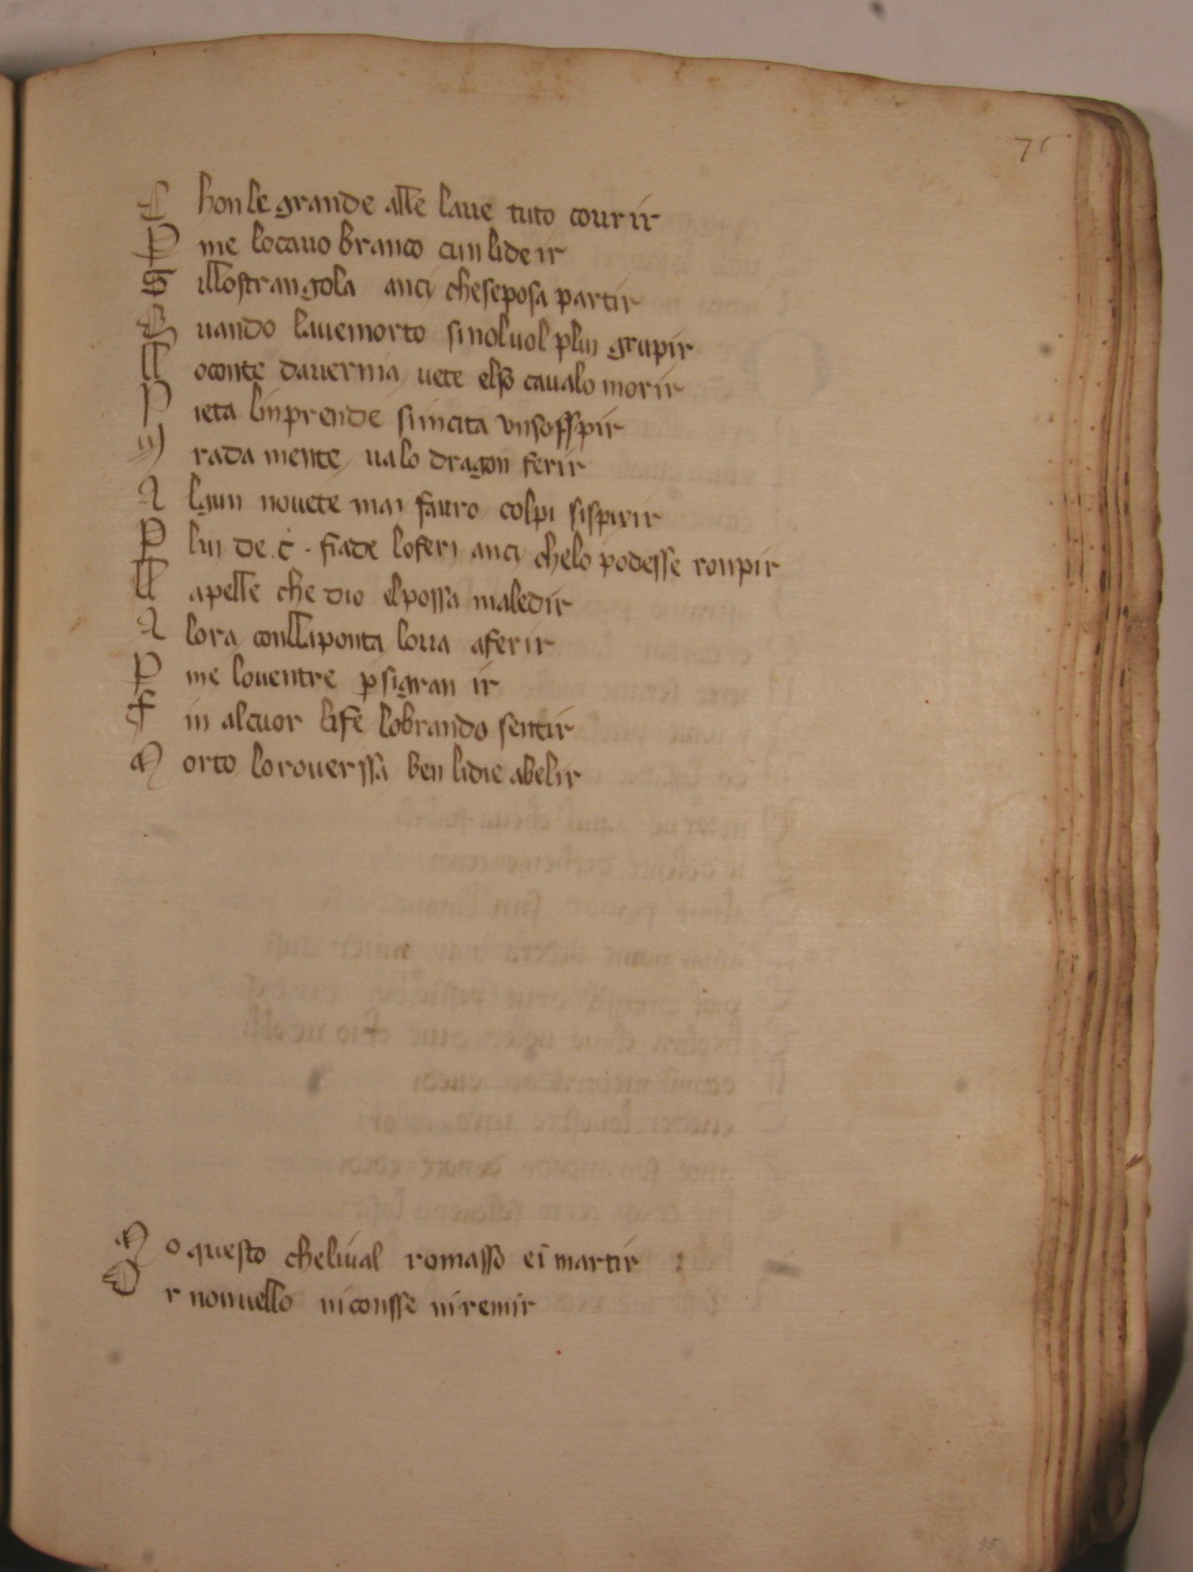 76
C hon le grande alle laue tuto courir
P me lo cauo branco cun li de ir
S illo strangola anci che se posa partir
Q uando laue morto si nol uol plui grupir
LL o conte dauernia uete elso caualo morir
P ieta lin prende si incita un sosspir
I rada mente ua lo dragon ferir
A lgun no uete mai fauro colpi si spirir
P lui de .c. fiade lo feri anci che lo podesse ronpir
LL a pelle che dio el possa maledir
A lora con lla ponta lo ua a ferir
P me lo uentre p si gran ir
F in al cuor li fe lo brando sentir
M orto lo rouerssa ben li die abelir
M o questo cheliual romasso ei martir
O r non uello ni consse ni remir